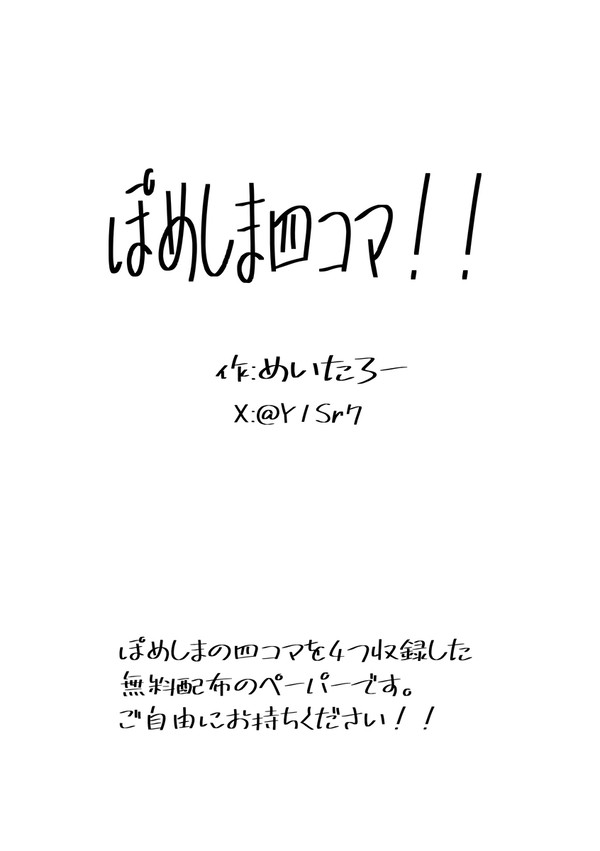 ぽめしま四コマ！！
作:めいたろー
X:@Y1Sr7
ぽめしまの四コマを4つ収録した
無料配布のペーパーです。
ご自由にお持ちください！！